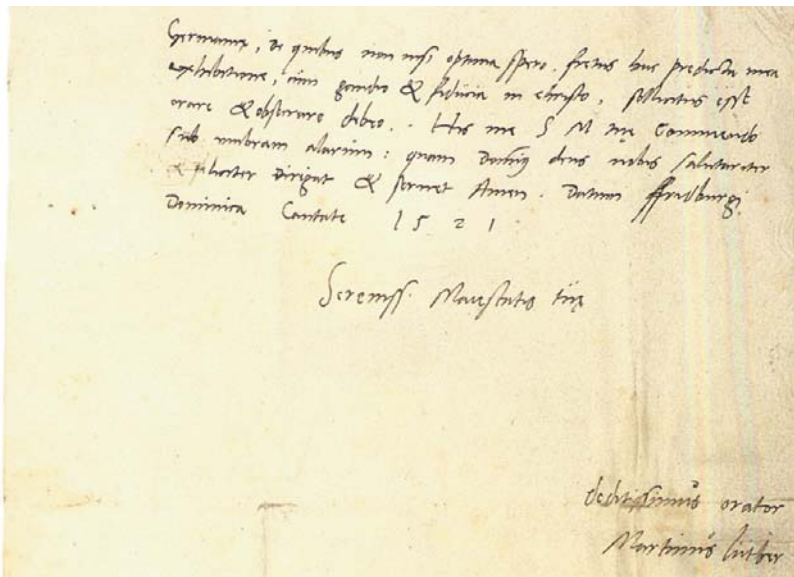 Germanię, de quibus non nisi optima spero. fretus hac predicta mea
exhibitione, cum gaudio & fiducia in christo, sollicitus esse
orare & obsecrare debeo. His me S M tuę Commendo
sub umbram alarum: quam Dominus deus nobis salutariter
& feliciter dirigat & servet Amen. Datum ffridburgi
Dominica Cantate 1521
Sereniss. Maiestatis tuę
deditissimus orator
Martinus Luther